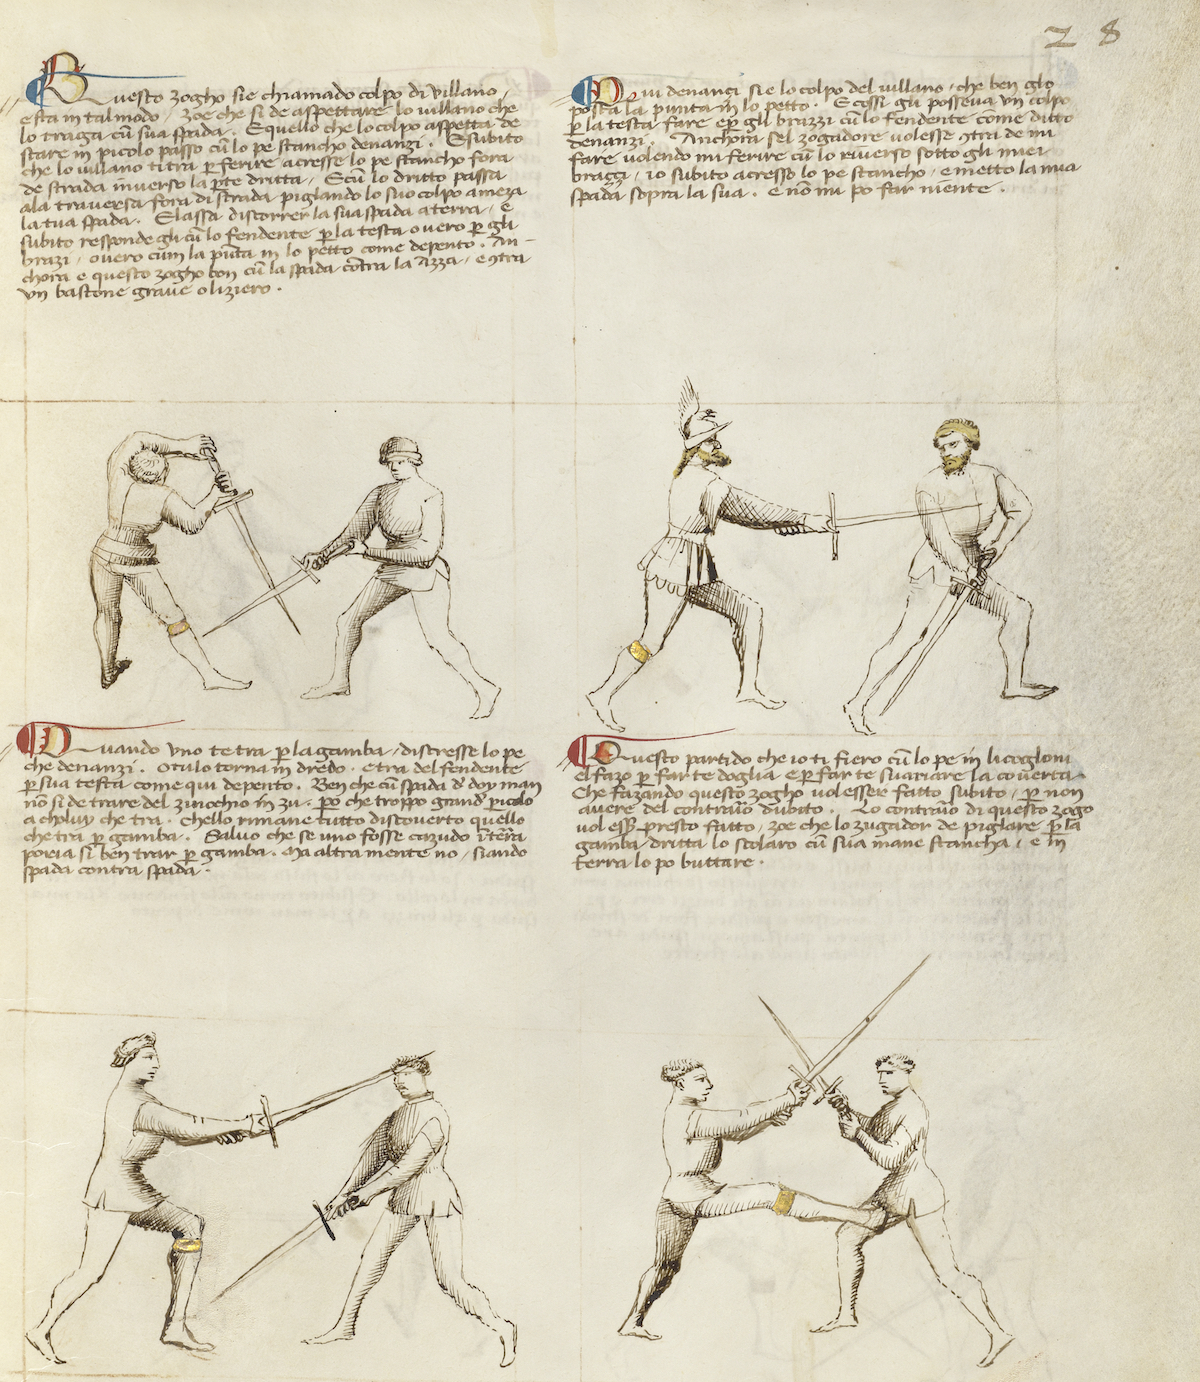 28
Questo zogho sie chiamado colpo di villano,
e sta in tal modo, zoe che si de aspettare lo villano che
lo traga cū sua spada. E quello che lo colpo aspetta de
stare in picolo passo cū lo pe stancho denanzi. E subito
che lo villano ti tra ꝑ ferire acresse lo pe stancho fora
de strada inverso la ꝑte dritta, E cū lo dritto passa
ala traversa fora di strada piglando lo suo colpo a meza
la tua spada. E lassa discorrer la sua spada a terra, e
subito responde gli cū lo fendente ꝑ la testa overo ꝑ gli
brazi, overo cum la pūta in lo petto come depento. An-
chora e questo zogho bon cū la spada cōtra la azza, e ɔtra
un bastone grave o liziero.
Qui denanci si e lo colpo del villano, che ben glo
posta la punta in lo petto. E cossi gli posseva un colpo
ꝑ la testa fare e ꝑ gli brazzi cū lo fendente come ditto
denanzi. Anchora sel zogadore volesse ɔtra de mi
fare volendo mi ferire cū lo riverso sotto gli miei
brazzi, io subito acresso lo pe stancho, e metto la mia
spada sopra la sua. e nō mi po far niente.
Quando uno te tra ꝑ la gamba, discresse lo pe
che denanzi. O tu lo torna in dredo. e tra del fendente
ꝑ sua testa come qui depento. Ben che cū spada d' doy man
nō si de trare del zinochio in zu. ꝑo che troppo grand' piculo
a choluy che tra. Chello rimane tutto discoverto quello
che tra ꝑ gamba. Salvo che se uno fosse cazudo ī terra
poria si ben trar ꝑ gamba. Ma altra mente no, siando
spada contra spada.
Questo partido che io ti fiero cū lo pe in li cogloni
el fazo ꝑ far te doglia e ꝑ far te svariare la coverta.
Che fazando questo zogho vol esser fatto subito, ꝑ non
avere del contrario dubito. Lo contrario di questo zogo
vol esser presto fatto, zoe che lo zugador de piglare ꝑ la
gamba dritta lo scolaro cū sua mane stancha, e in
terra lo po buttare.